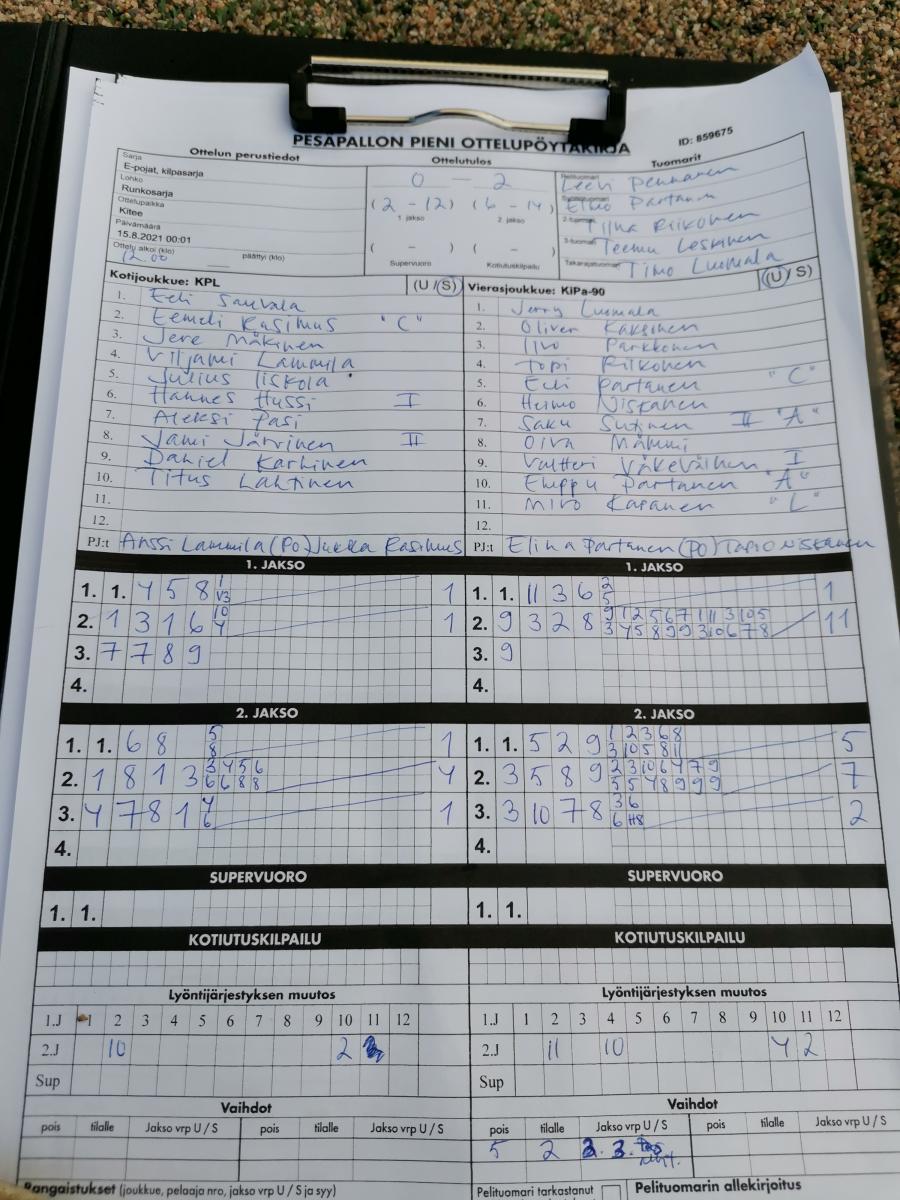 PESÄPALLON PIENI OTTELUPÖYTÄKIRJA ID: 859675
Ottelun perustiedot Ottelutulos Tuomarit
Sarja
E-pojat, kilpasarja
Lohko
Runkosarja
Ottelupaikka
Kitee
Päivämäärä
15.8.2021 00:01
Ottelu alkoi (klo) 12.00 päättyi (klo)
0 – 2
(2 – 12) (6 – 14)
1. jakso 2. jakso
( – ) ( – )
Supervuoro Kotiutuskilpailu
Pelituomari Leevi Pennanen
Elmo Partanen
2-tuomari Tiina Riikonen
3-tuomari Teemu Leskinen
Takarajatuomari Timo Luomala
Kotijoukkue: KPL (U / S)
1. Eeli Sauvala
2. Eemeli Rasimus "C"
3. Jere Mäkinen
4. Viljami Lammila
5. Julius Iiskola
6. Hannes Hussi I
7. Aleksi Pasi
8. Jami Järvinen II
9. Daniel Karhinen
10. Titus Lahtinen
11.
12.
PJ:t Anssi Lammila (PO) Jukka Rasimus
Vierasjoukkue: KiPa-90 (U / S)
1. Jerry Luomala
2. Oliver Kaksinen
3. Iivo Parkkonen
4. Topi Riikonen
5. Eeli Partanen "C"
6. Heimo Niskanen
7. Saku Sutinen II "A"
8. Oiva Mämmi
9. Valtteri Väkeväinen I
10. Eliappu Partanen "A"
11. Miro Kasanen "L"
12.
PJ:t Elina Partanen (PO) Tapio Niskanen
1. JAKSO 1. JAKSO
1. 1. 4 5 8 1 V3 1
2. 1 3 1 6 10 4 1
3. 7 7 8 9
4.
1. 1. 11 3 6 2 5 1
2. 9 3 2 8 9 1 2 5 6 7 1 11 3 10 5 11
3 4 5 8 9 9 3 10 6 7 8
3. 9
4.
2. JAKSO 2. JAKSO
1. 1. 6 8 5 8 1
2. 1 8 1 3 3 4 5 6 4
6 6 8 8
3. 4 7 8 1 4 6 1
4.
1. 1. 5 2 9 1 2 3 6 8 5
3 10 5 8 11
2. 3 5 8 9 2 3 10 6 4 7 9 7
5 5 4 8 9 9 9
3. 3 10 7 8 3 6 2
6 H8
4.
SUPERVUORO SUPERVUORO
1. 1. 1. 1.
KOTIUTUSKILPAILU KOTIUTUSKILPAILU
Lyöntijärjestyksen muutos Lyöntijärjestyksen muutos
1.J 1 2 3 4 5 6 7 8 9 10 11 12 1.J 1 2 3 4 5 6 7 8 9 10 11 12
2.J 10 2 2.J 11 10 4 2
Sup Sup
Vaihdot Vaihdot
pois tilalle Jakso vrp U / S pois tilalle Jakso vrp U / S pois tilalle Jakso vrp U / S pois tilalle Jakso vrp U / S
5 2 2. 3.
Rangaistukset (joukkue, pelaaja nro, jakso vrp U / S ja syy) Pelituomari tarkastanut Pelituomarin allekirjoitus